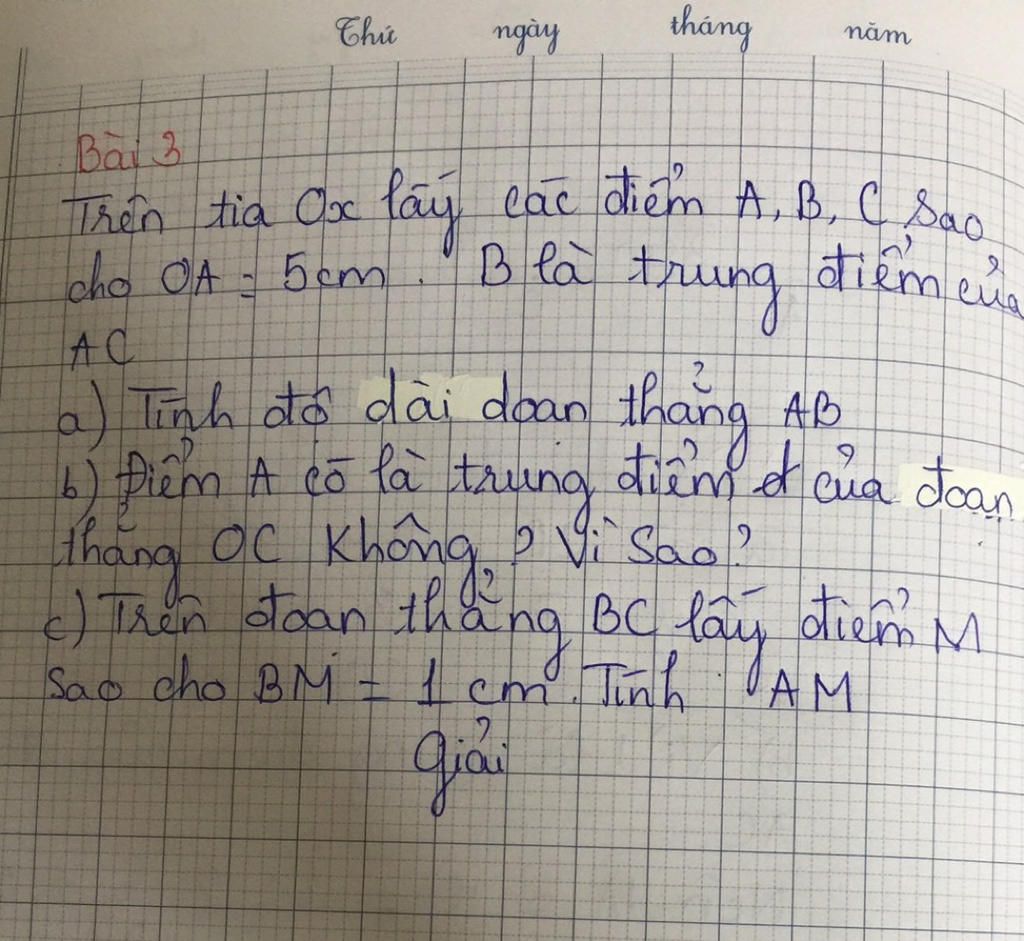 Thứ ngày tháng năm
Bài 3
Trên tia Ox lấy các điểm A, B, C sao
cho OA = 5cm. B là trung điểm của
AC
a) Tính độ dài đoan thẳng AB
b) Điểm A có là trung điểm của đoạn
thẳng OC không? Vì sao?
c) Trên đoan thẳng BC lấy điểm M
sao cho BM = 1 cm. Tính AM
Giải